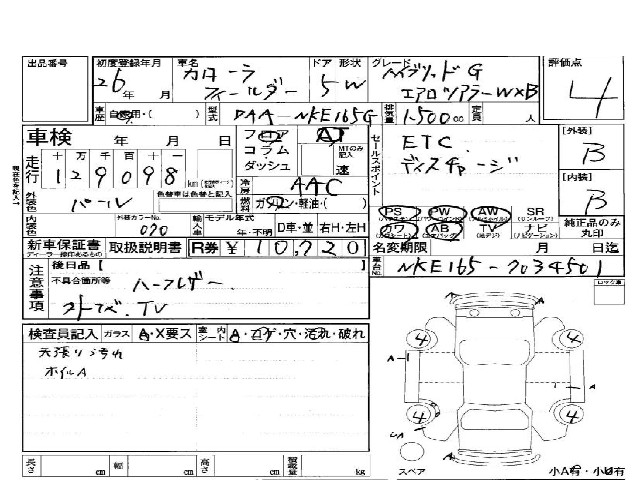 出品番号
初度登録年月
26 年 月
車名
カローラ
フィールダー
ドア 形状
5W
グレード
ハイブリッドG
エアロツアラーWXB
評価点
4
車歴 自家用・( )
型式 DAA-NKE165G
排気量 1500 cc
定員 人
車検 年 月 日
走行 十 万 千 百 十 一
129098 km
フロア
コラム
ダッシュ
AT
MTのみ記入
速
セールスポイント
ETC
ディスチャージ
[外装]
B
[内装]
B
冷房 AAC
燃料 ガソリン・軽油・( )
外装色 パール
色替車は色替と記入
内装色
外装カラーNo.
070
輸入車 モデル年式
年・不明
D車・並
右H・左H
PS PW AW SR
カワ AB TV ナビ
純正品のみ丸印
新車保証書
取扱説明書
R券 ¥10,720
名変期限 月 日迄
車台No. NKE165-7034501
注意事項
後日品 [
不具合箇所等
ハーフレザー
外ナビ.TV
検査員記入 ガラス A・X要ス 室内シート A・コゲ・穴・汚れ・破れ
天張り汚れ
ホイルA
4 4 4 4
A A A
UA
スペア
ロック車
小A有・小U有
長さ cm 幅 cm 高さ cm 積載量 kg